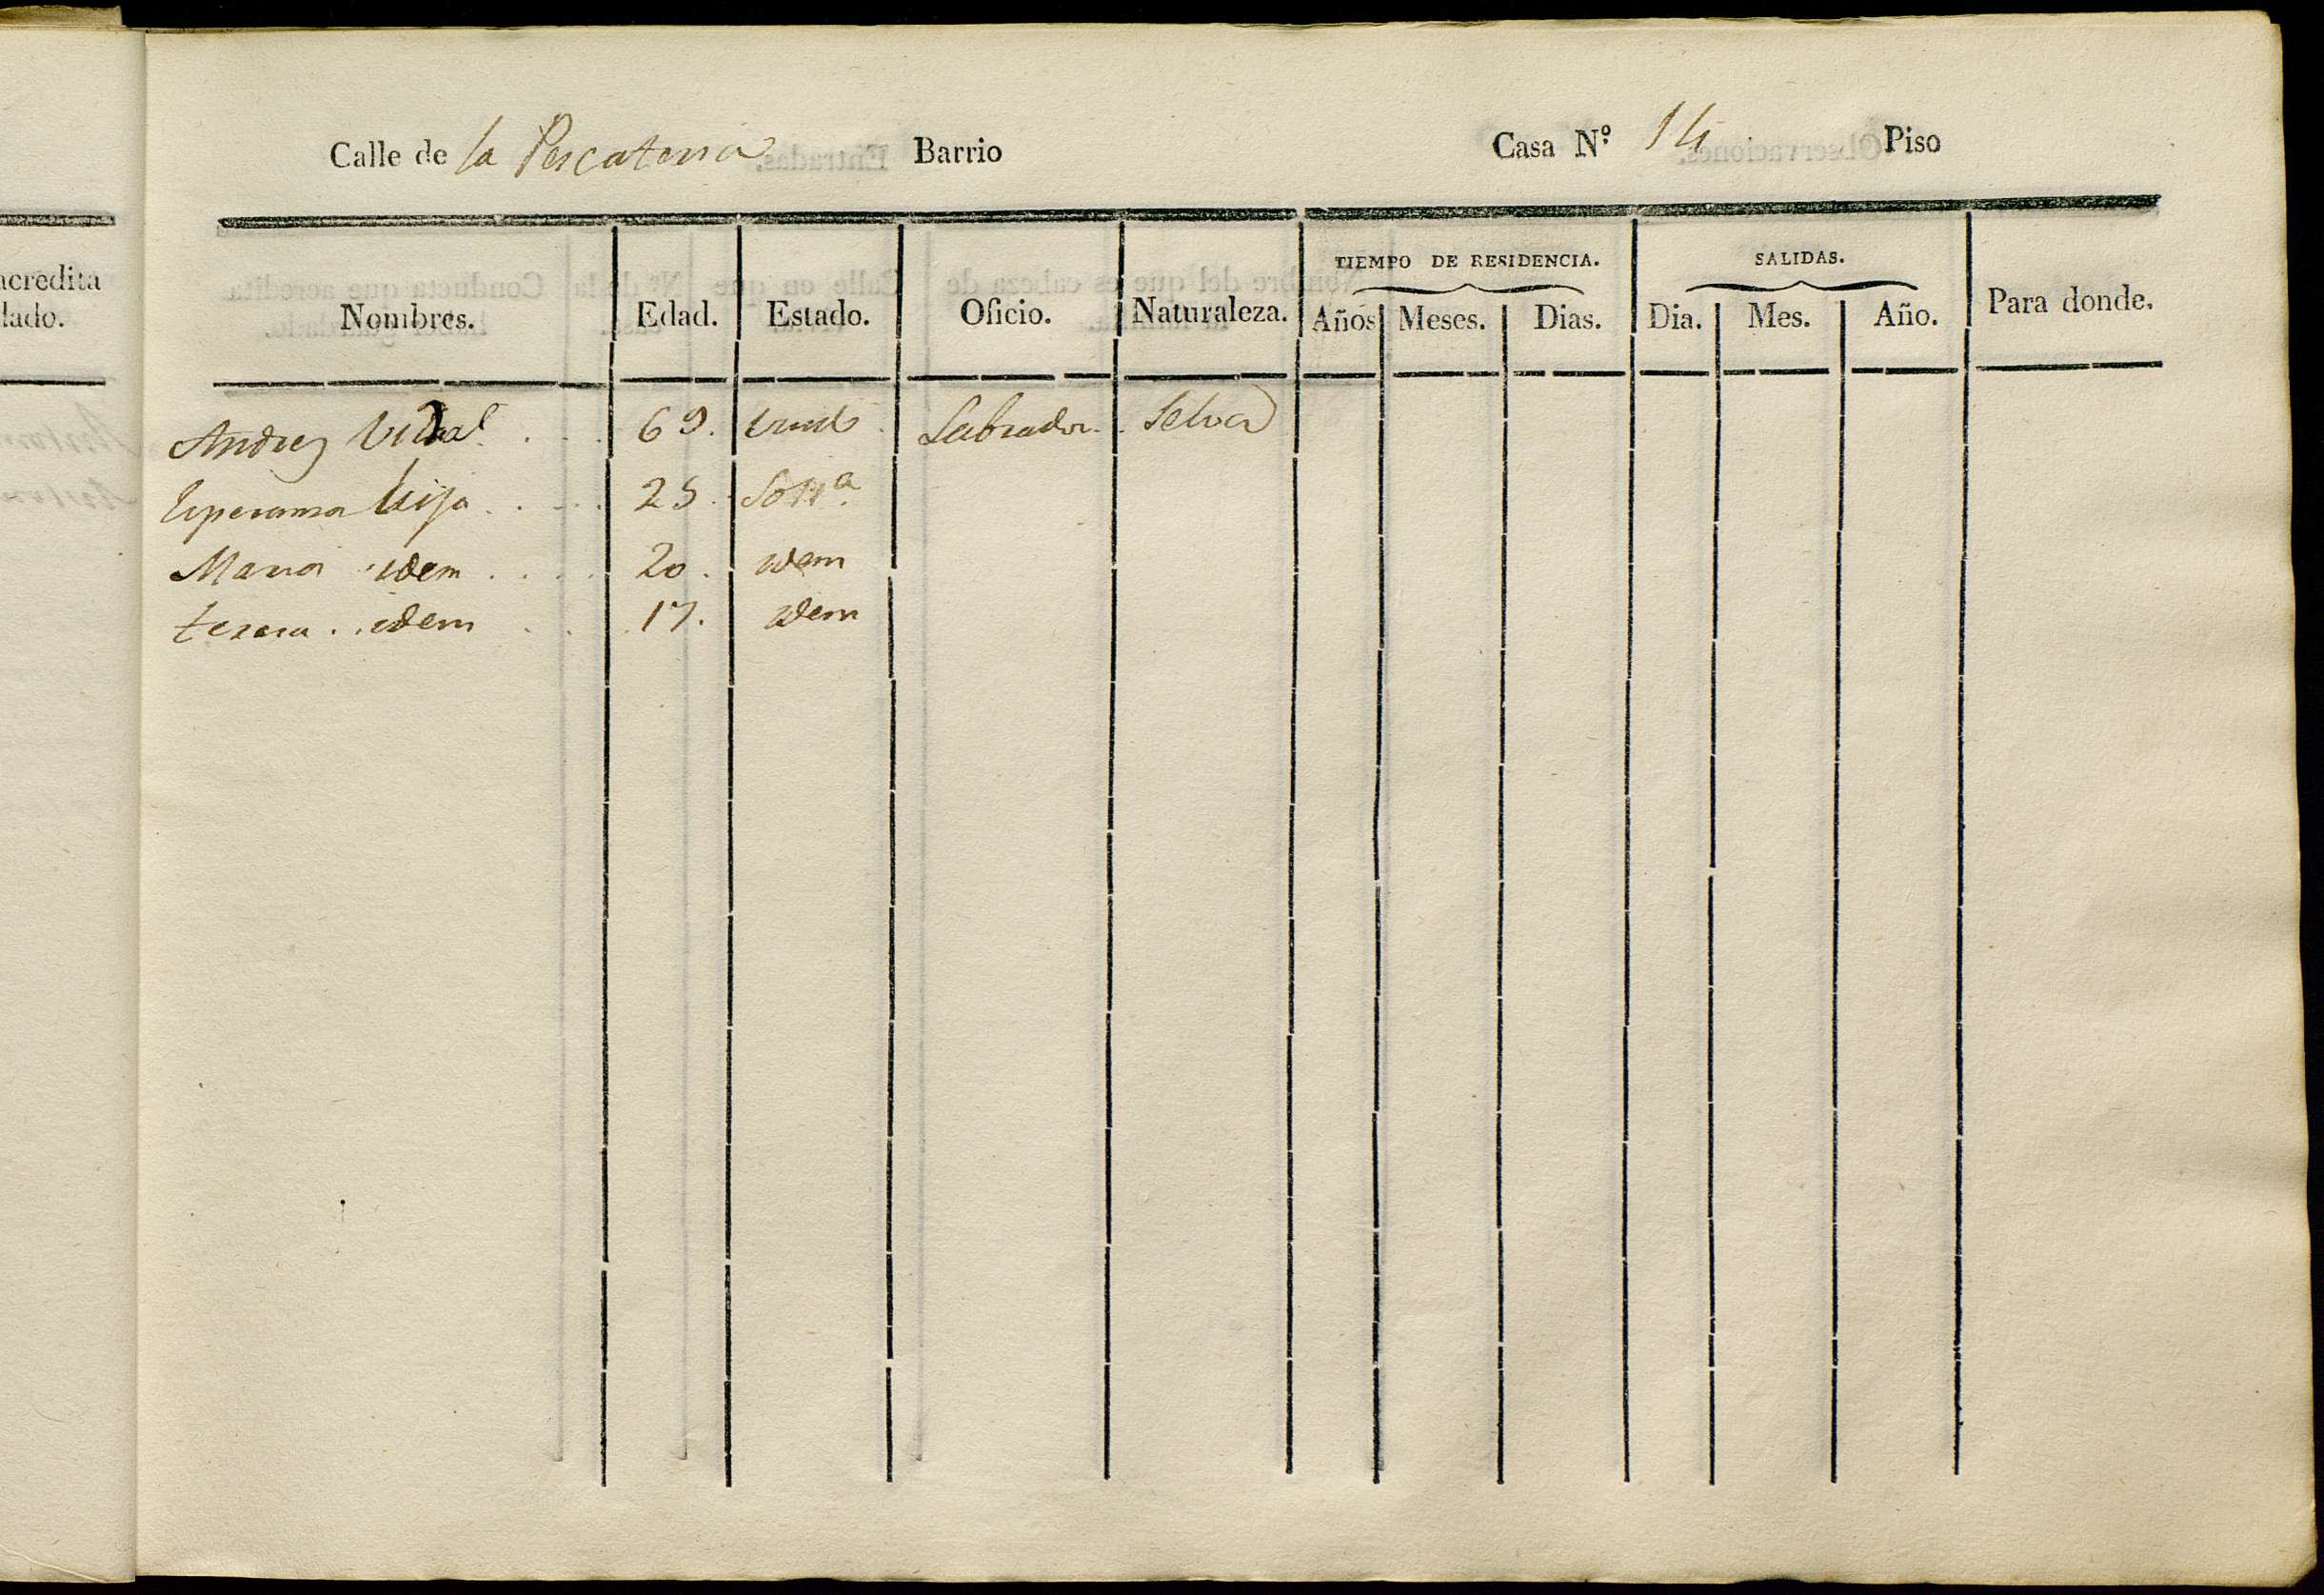 acredita
lado.
Calle de la Pescateria Barrio Casa N.º 14 Piso
TIEMPO DE RESIDENCIA. SALIDAS.
Nombres. Edad. Estado. Oficio. Naturaleza. Años Meses. Dias. Dia. Mes. Año. Para donde.
Andres Vidal. 69. viudo. Labrador. Selva
Esperansa hija 25. Solt.ª
Maria idem 20. idem
teresa idem 17. idem